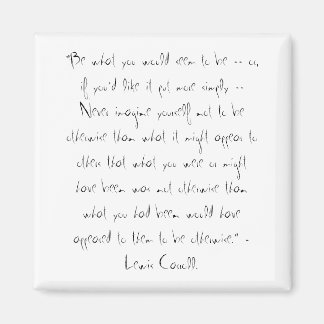 "Be what you would seem to be -- or,
if you'd like it put more simply --
Never imagine yourself not to be
otherwise than what it might appear to
others that what you were or might
have been was not otherwise than
what you had been would have
appeared to them to be otherwise." -
Lewis Carroll